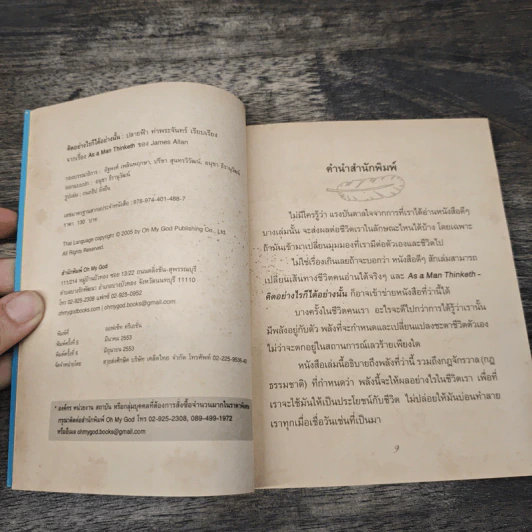 คิดอย่างไรก็ได้อย่างนั้น : ปลายฟ้า ท่าพระจันทร์ เรียบเรียง
จากเรื่อง As a Man Thinketh ของ James Allen
เลขมาตรฐานสากลประจำหนังสือ : 978-974-401-488-7
ราคา 100 บาท
Thai Language copyright © 2005 by Oh My God Publishing Co., Ltd.
All Rights Reserved.
สำนักพิมพ์ Oh My God
โทร 02-925-2308
ohmygodbooks.com : ohmygod.books@gmail.com
พิมพ์ที่
พิมพ์ครั้งที่ 3 มีนาคม 2553
พิมพ์ครั้งที่ 4 มิถุนายน 2553
จัดจำหน่ายโดย
* องค์กร หน่วยงาน สถาบัน หรือกลุ่มบุคคลที่ต้องการสั่งซื้อจำนวนมากในราคาพิเศษ
กรุณาติดต่อสำนักพิมพ์ Oh My God โทร 02-925-2308, 089-499-1972
หรืออีเมล ohmygod.books@gmail.com
คำนำสำนักพิมพ์
ไม่มีใครรู้ว่า แรงบันดาลใจจากการที่เราได้อ่านหนังสือดีๆ
บางเล่มนั้น จะส่งผลต่อชีวิตเราในลักษณะไหนได้บ้าง โดยเฉพาะ
ถ้ามันเข้ามาเปลี่ยนมุมมองที่เรามีต่อตัวเองและชีวิตไป
ไม่ใช่เรื่องเกินเลยถ้าจะบอกว่า หนังสือดีๆ สักเล่มสามารถ
เปลี่ยนเส้นทางชีวิตคนอ่านได้จริงๆ และ As a Man Thinketh -
คิดอย่างไรก็ได้อย่างนั้น ก็อาจเข้าข่ายหนังสือที่ว่านี้ได้
บางครั้งในชีวิตคนเรา อะไรจะดีไปกว่าการได้รู้ว่าเรานั้น
มีพลังอยู่กับตัว พลังที่จะกำหนดและเปลี่ยนแปลงชะตาชีวิตตัวเอง
ไม่ว่าจะตกอยู่ในสถานการณ์เลวร้ายเพียงใด
หนังสือเล่มนี้อธิบายถึงพลังที่ว่านี้ รวมถึงกฎจักรวาล (กฎ
ธรรมชาติ) ที่กำหนดว่า พลังนี้จะให้ผลอย่างไรในชีวิตเรา เพื่อที่
เราจะใช้มันให้เป็นประโยชน์กับชีวิต ไม่ปล่อยให้มันบ่อนทำลาย
เราทุกเมื่อเชื่อวันเช่นที่เป็นมา
9